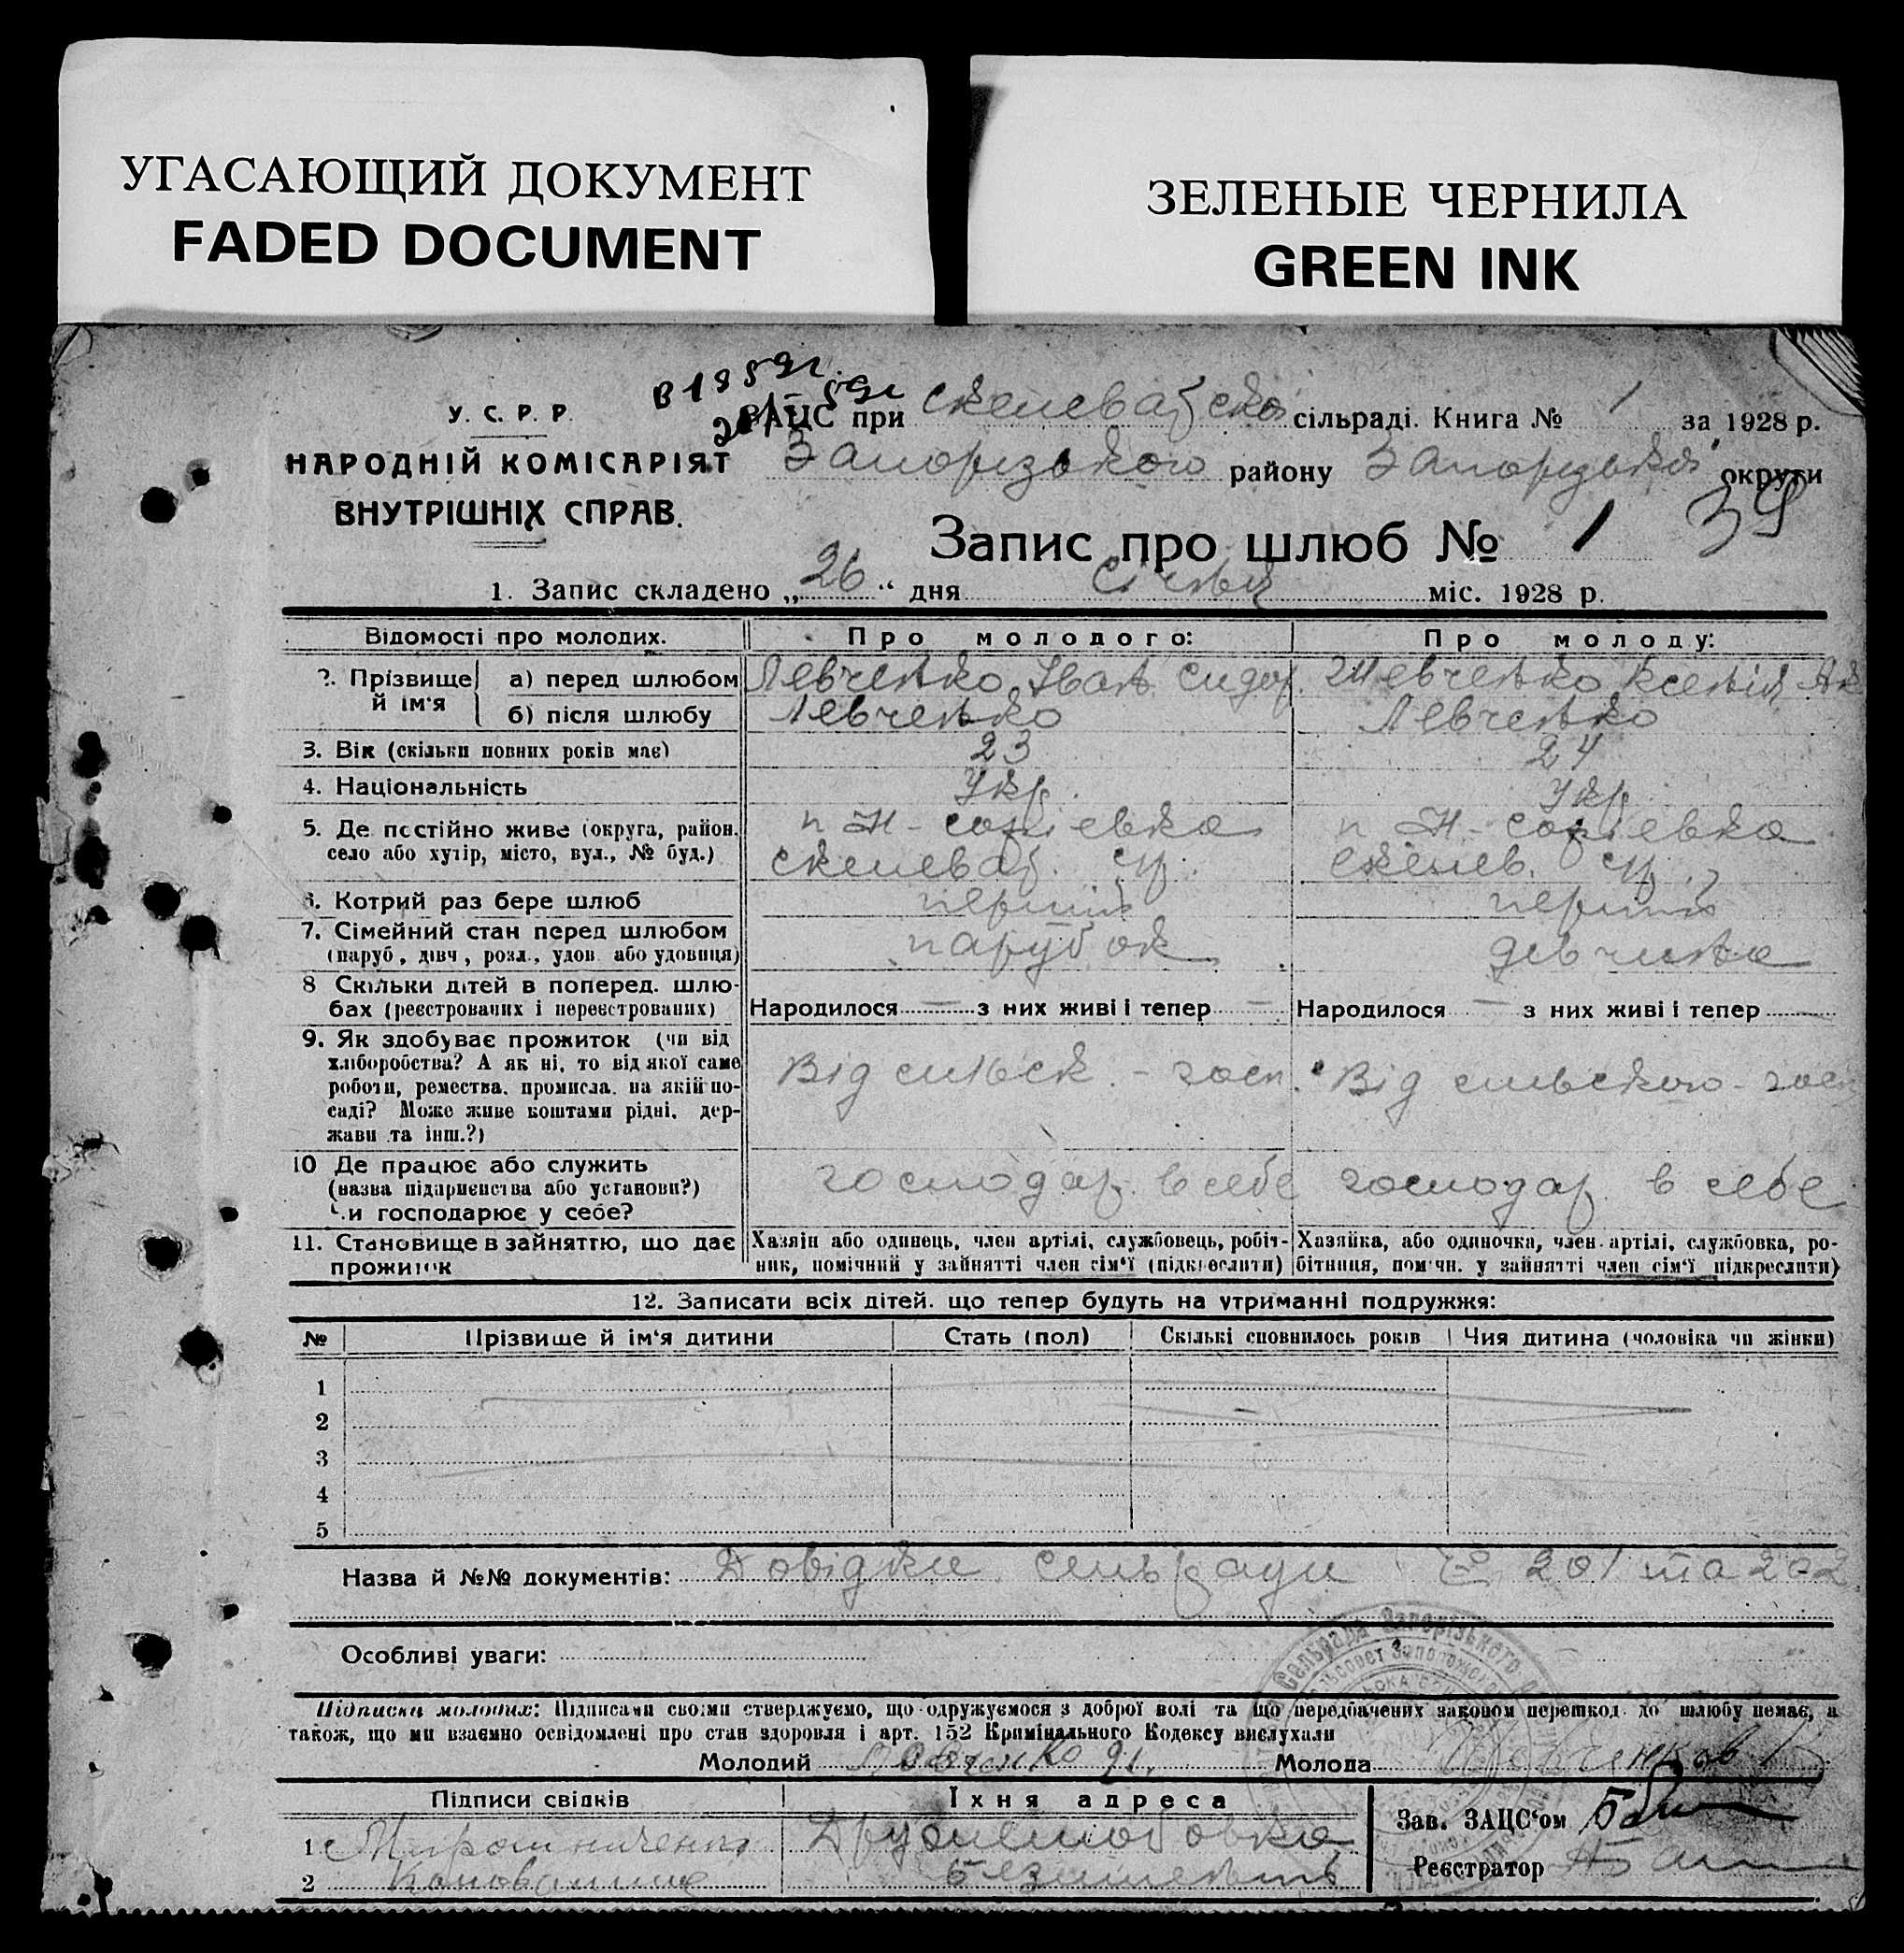 УГАСАЮЩИЙ ДОКУМЕНТ
FADED DOCUMENT
ЗЕЛЕНЫЕ ЧЕРНИЛА
GREEN INK
У. С. Р. Р.
НАРОДНІЙ КОМІСАРІЯТ
ВНУТРІШНІХ СПРАВ.
ЗАЦС при Скелеватској сільраді. Книга № 1 за 1928 р.
Запорізького району Запорізької округи
39
Запис про шлюб № 1
1. Запис складено „26“ дня січня міс. 1928 р.
Відомості про молодих. Про молодого: Про молоду:
2. Прізвище й ім'я а) перед шлюбом Левченко Іван Сидор. Шевченко Ксенія Як
б) після шлюбу Левченко Левченко
3. Вік (скільки повних років має) 23 24
4. Національність Укр. Укр.
5. Де постійно живе (округа, район, п Н-Софієвка п Н-Софієвка
село або хутір, місто, вул., № буд.) Скелеват. ср. Скелев. ср.
6. Котрий раз бере шлюб перший перший
7. Сімейний стан перед шлюбом парубок дівчина
(паруб., дівч., розл., удов. або удовиця)
8 Скільки дітей в поперед. шлю-
бах (реєстрованих і нереєстрованих) Народилося — з них живі і тепер — Народилося — з них живі і тепер
9. Як здобуває прожиток (чи від
хліборобства? А як ні, то від якої саме Від сильск. - госп. Від сильского - госп
роботи, ремества, промисла, на якій по-
саді? Може живе коштами рідні, дер-
жави та інш.?)
10 Де працює або служить
(назва підприємства або установи?) господар. в себе господар. в себе
Чи господарює у себе?
11. Становище в зайняттю, що дає Хазяїн або одинець, член артілі, службовець, робіт- Хазяйка, або одиночка, член артілі, службовка, ро-
прожиток ник, помічний у зайнятті член сім'ї (підкреслити) бітниця, помічн. у зайнятті член сім'ї підкреслити)
12. Записати всіх дітей, що тепер будуть на утриманні подружжя:
№ Прізвище й ім'я дитини Стать (пол) Скількі сповнилось років Чия дитина (чоловіка чи жінки)
1
2
3
4
5
Назва й №№ документів: Довідки сильради № 201 та 202
Особливі уваги:
Підписка молодих: Підписами своїми стверджуємо, що одружуємося з доброї волі та що передбачених законом перешкод до шлюбу немає, а
також, що ми взаємно освідомлені про стан здоровля і арт. 152 Кримінального Кодексу вислухали
Молодий Левченко И. Молода Шевченкова К
Підписи свідків Їхня адреса
1 Мирошниченко
2
Зав. ЗАЦС'ом
Реєстратор